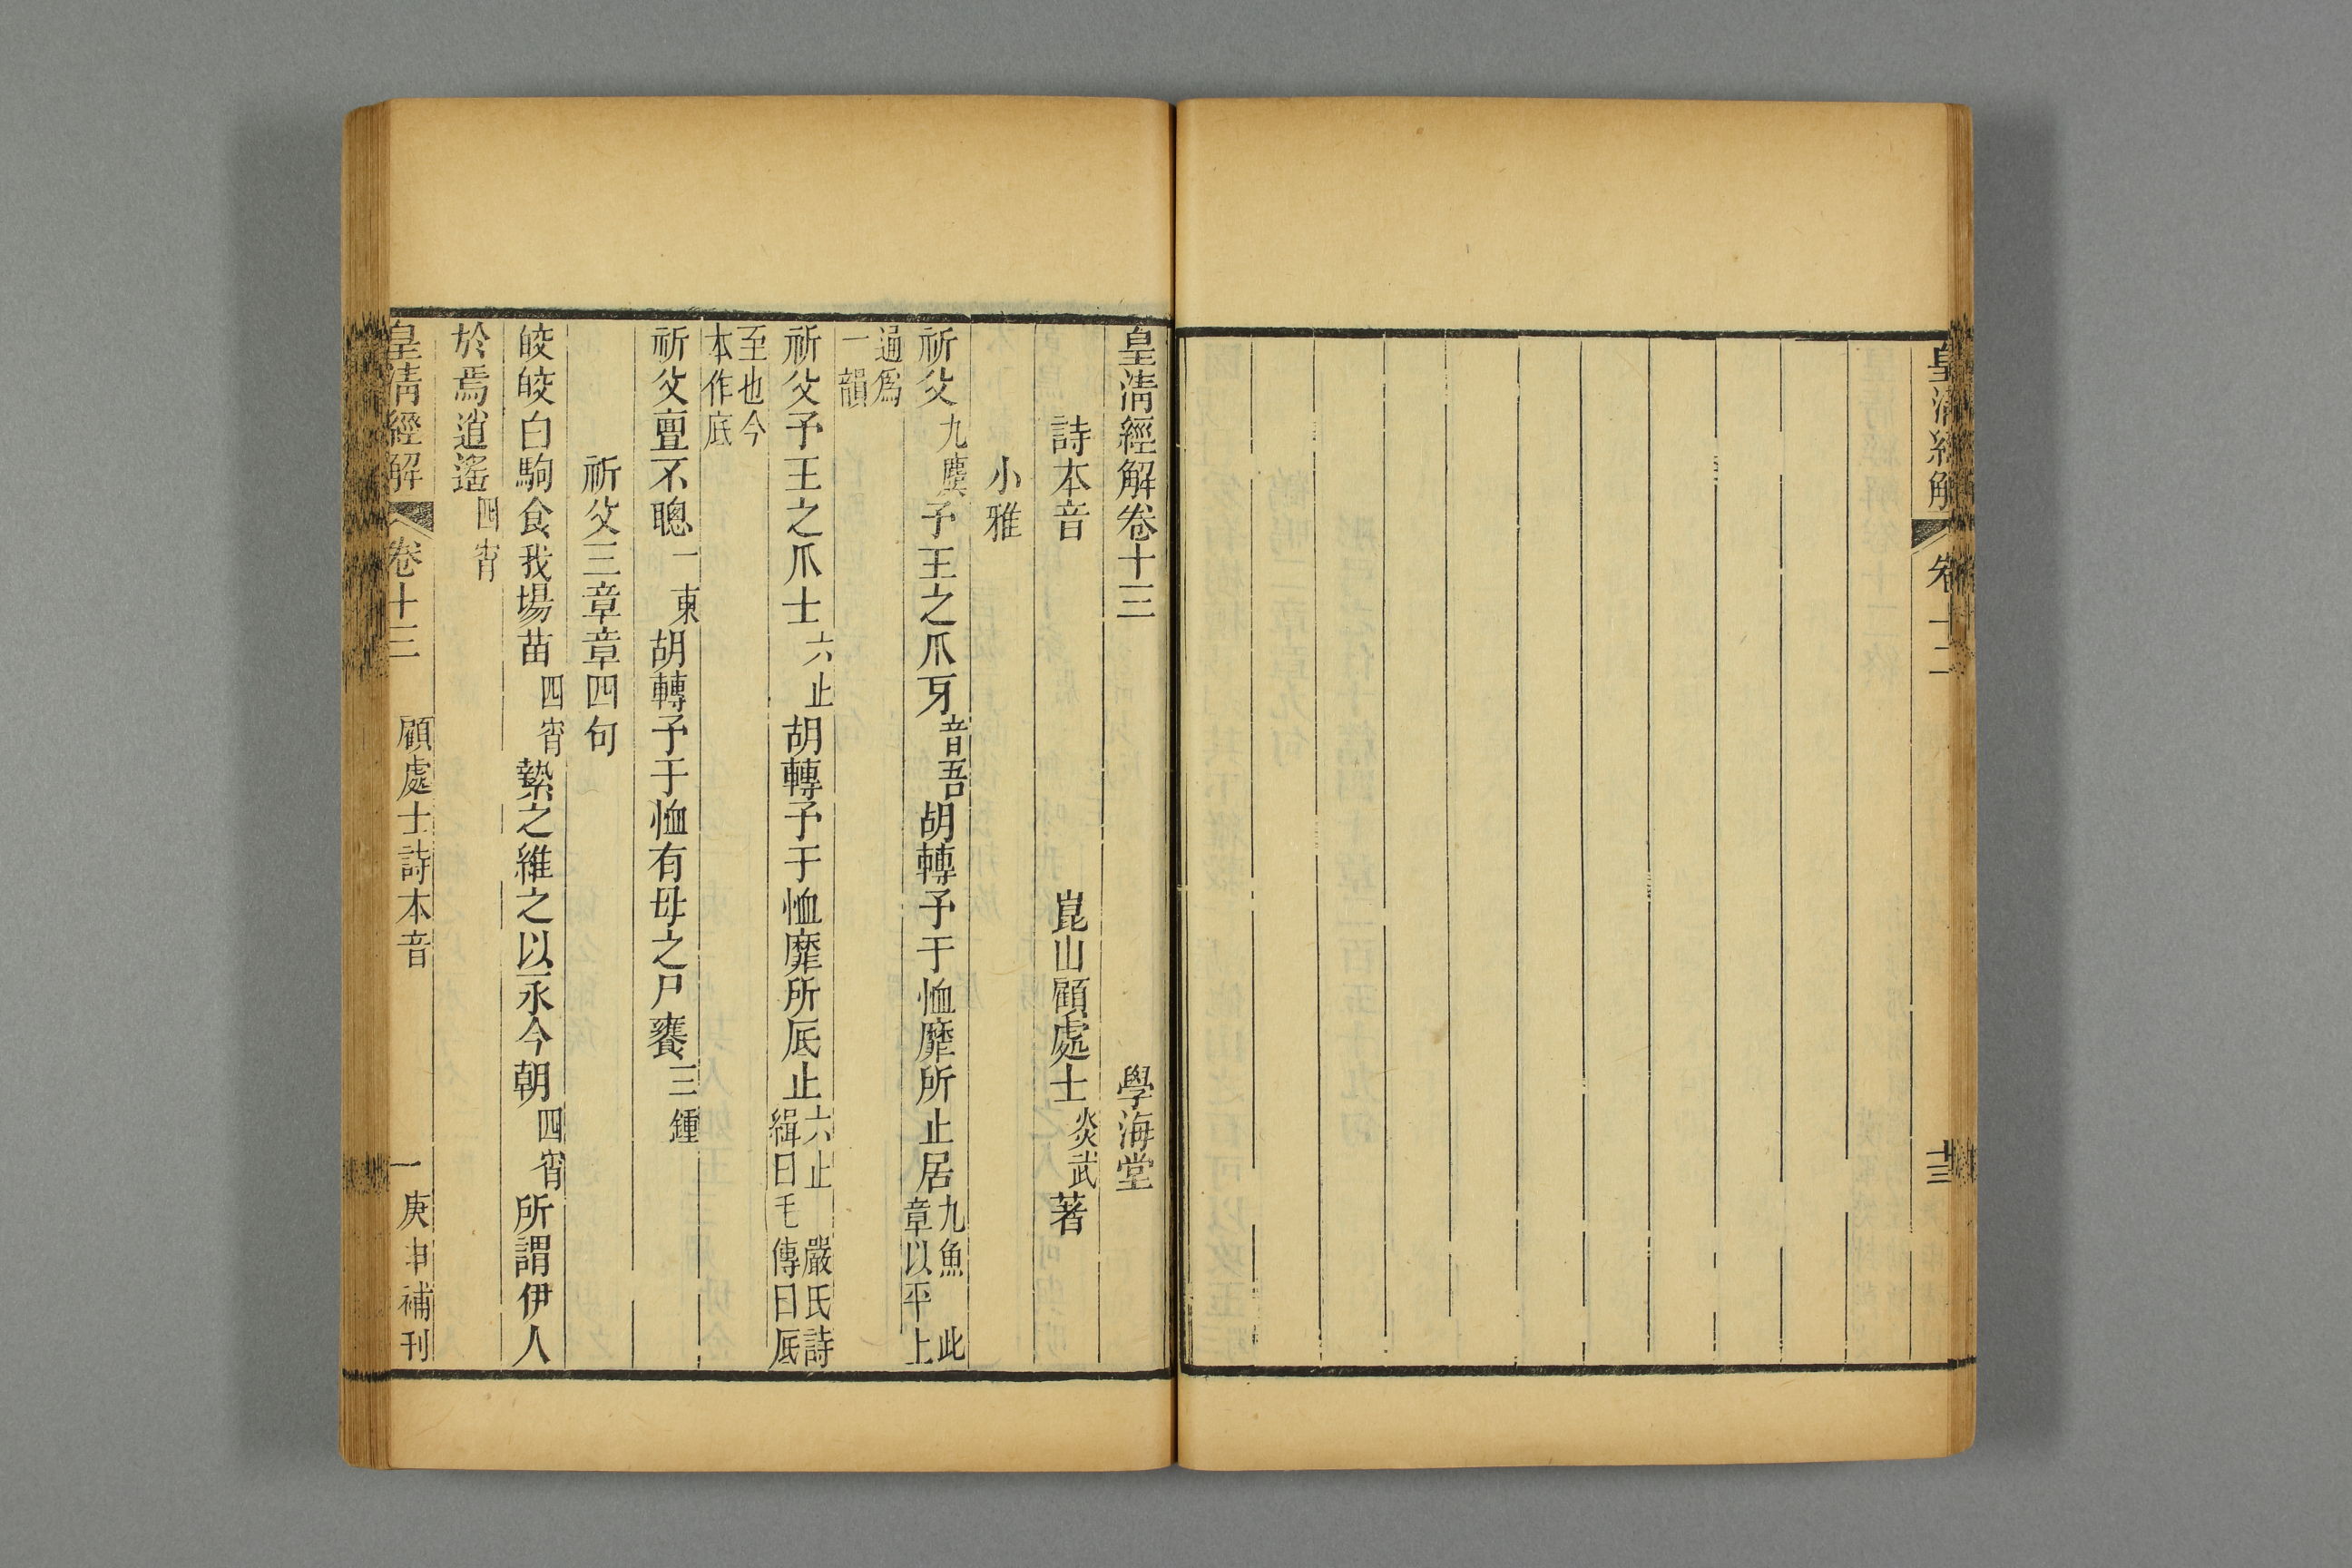 皇清經解 卷十二 十三
皇清經解卷十三 學海堂
詩本音 崑山顧處士炎武著
小雅
祈父九麌予王之爪牙音吾胡轉予于恤靡所止居九魚 此章以平上
通爲一韻
祈父予王之爪士六止胡轉予于恤靡所厎止六止 嚴氏詩緝曰毛傳曰厎
至也今本作底
祈父亶不聰一東胡轉予于恤有母之尸饔三鍾
祈父三章章四句
皎皎白駒食我場苗四宵縶之維之以永今朝四宵所謂伊人
於焉逍遙四宵
皇清經解 卷十三 顧處士詩本音 一 庚申補刊